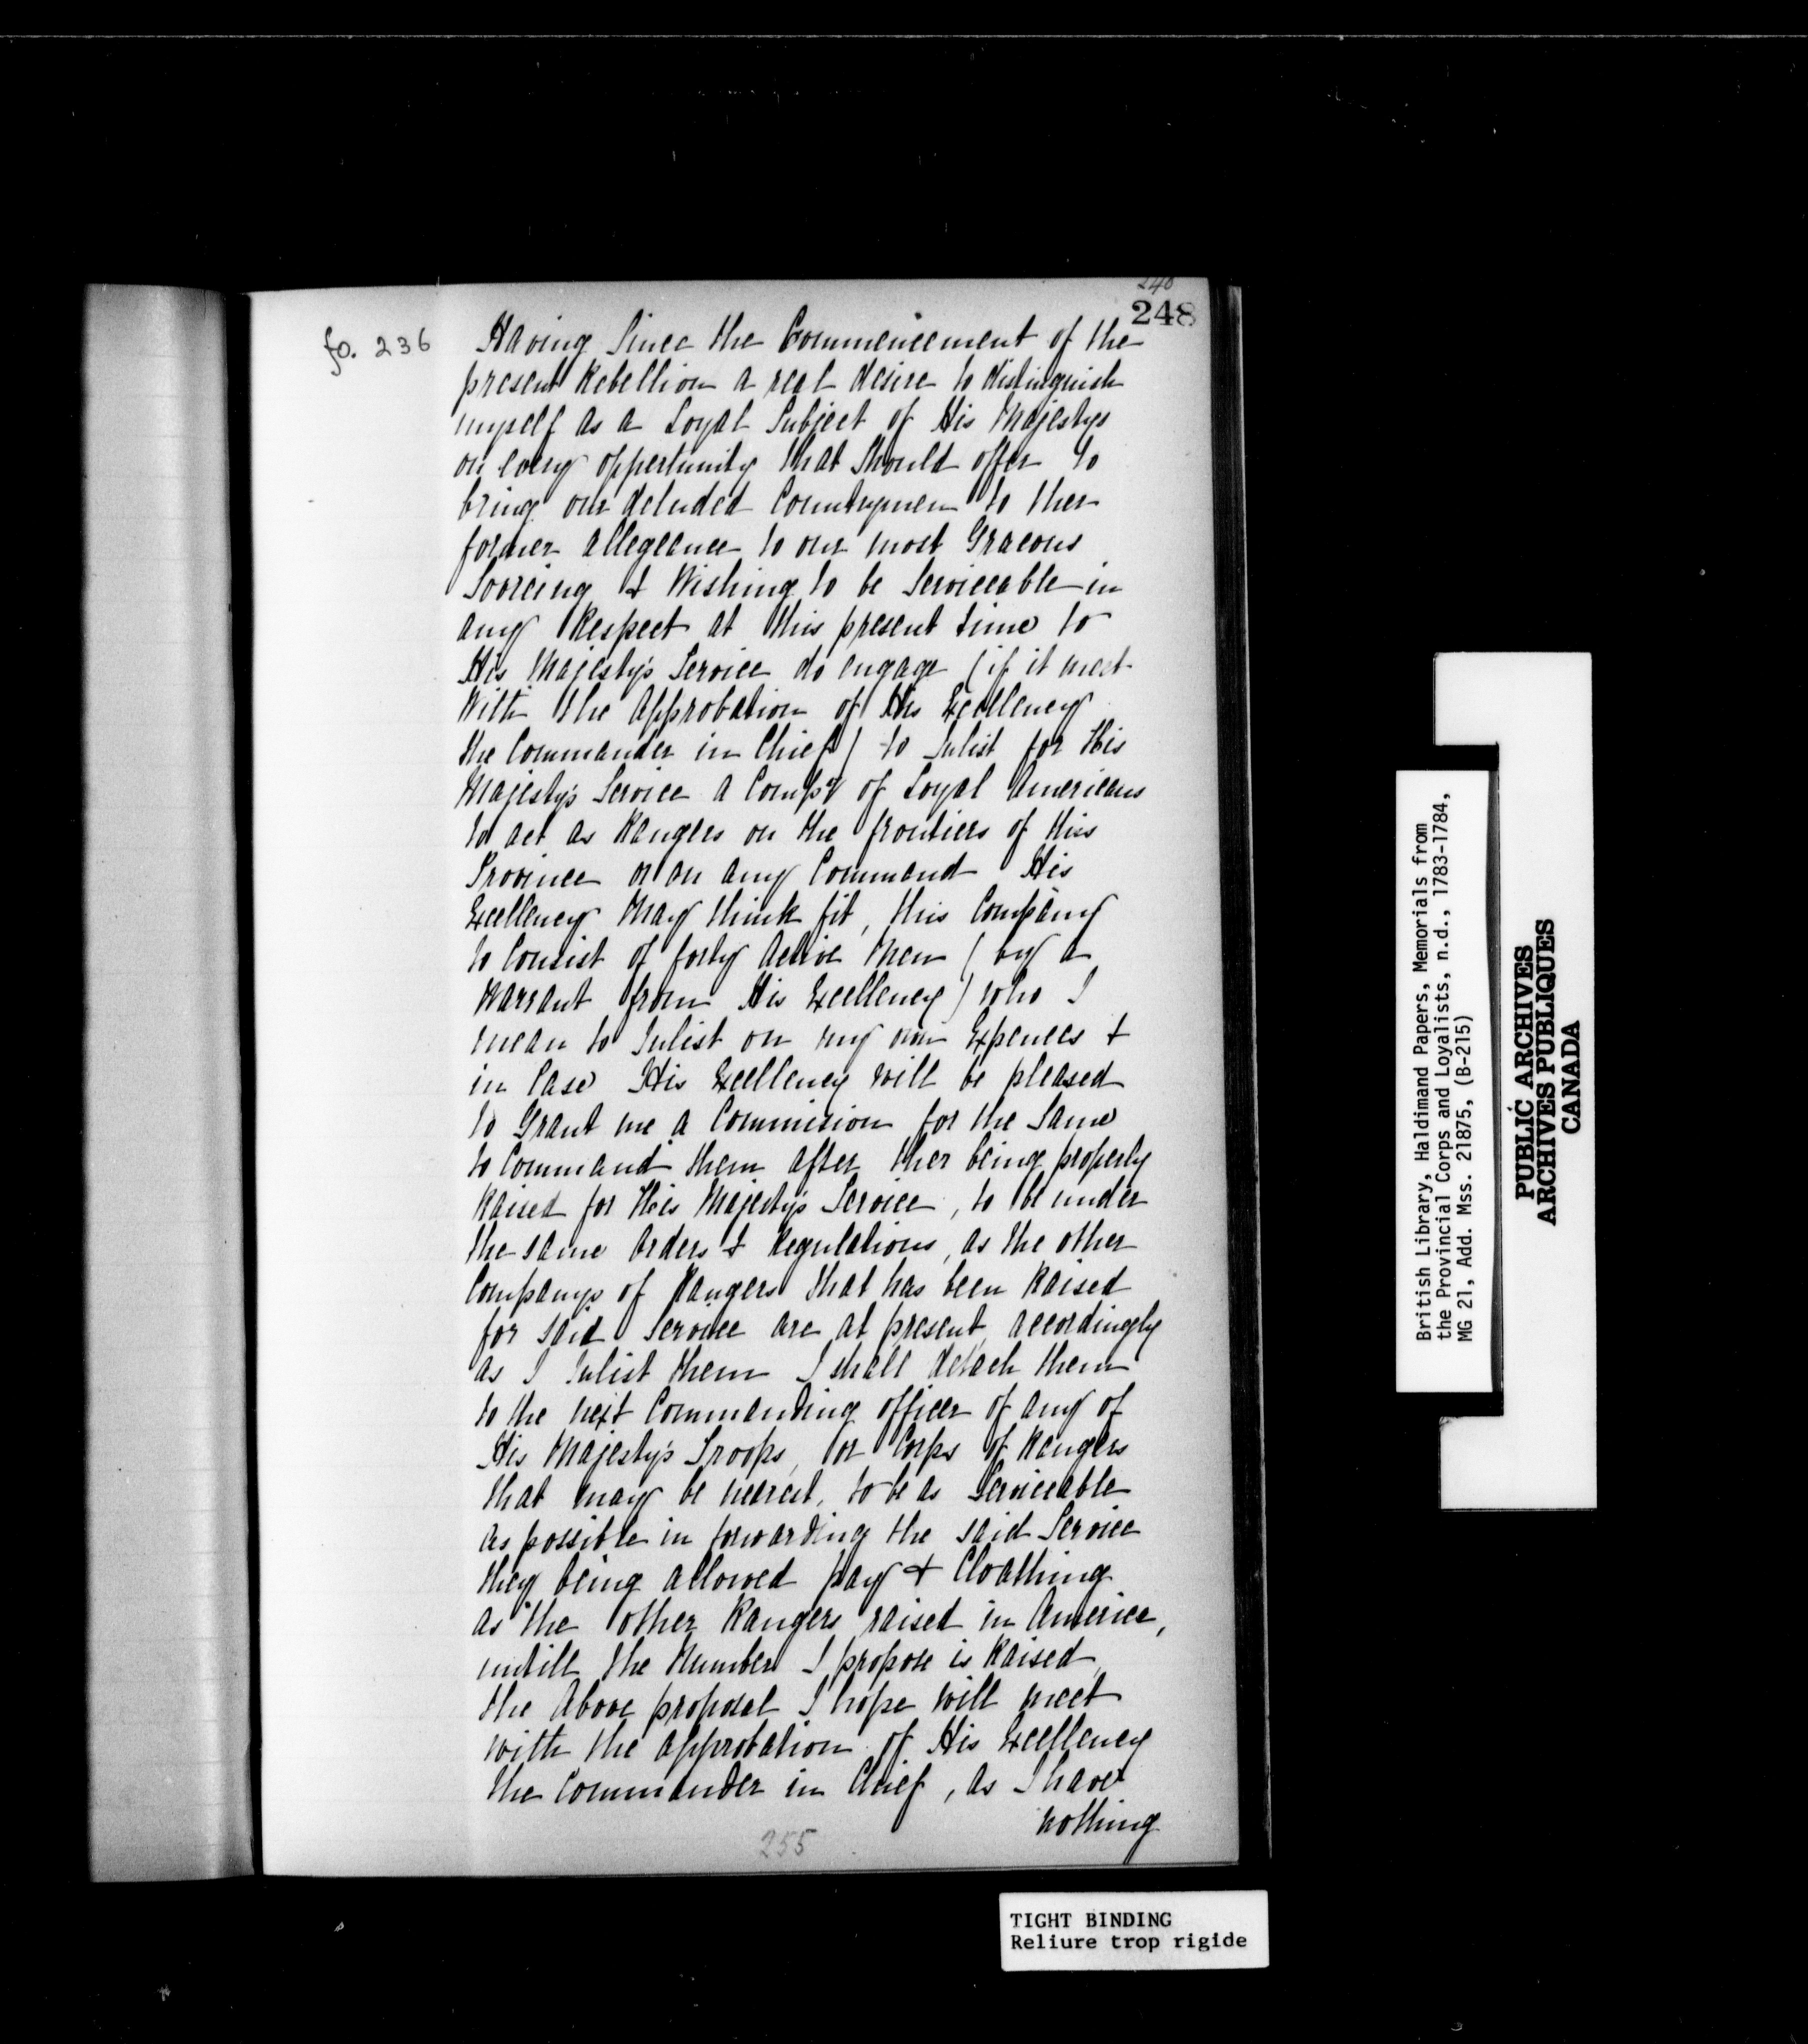 240
248
fo. 236
Having Since the Commencement of the
present Rebellion a real desire to distinguish
myself as a Loyal Subject of His Majestys
on every oppertunity that Should offer to
bring our deluded Countrymen to ther
former allegeance to our most Gracous
Sovreing & Wishing to be Serviceable in
any Respect at this present time to
His Majesty's Service do engage (if it meet
With the Approbation of His Excellency
the Commander in Chief) to Inlist for His
Majesty's Service a Compy of Loyal Americans
to act as Rangers on the frontiers of this
Province or on any Command His
Excellency May think fit, this Company
to Consist of forty Active Men (by a
Warrant from His Excellency) who I
mean to Inlist on my own Expences &
in Case His Excellency will be pleased
to Grant me a Commision for the Same
to Command them after ther being properly
Raised for His Majesty's Service, to be under
the same Orders & Regulations, as the other
Companys of Rangers that has been Raised
for said Service are at present, accordingly
as I Inlist them I shall detach them
to the next Commanding officer of any of
His Majesty's Troops, or Corps of Rangers
that may be nearest, to be as Serviceable
as possible in forwarding the said Service
they being allowed pay & Cloathing
as the other Rangers raised in America,
untill the Number I propose is Raised,
the Above proposal I hope will meet
with the approbation of His Excellency
the Commander in Chief, as I have
nothing
255
British Library, Haldimand Papers, Memorials from
the Provincial Corps and Loyalists, n.d., 1783-1784,
MG 21, Add. Mss. 21875, (B-215)
PUBLIC ARCHIVES
ARCHIVES PUBLIQUES
CANADA
TIGHT BINDING
Reliure trop rigide